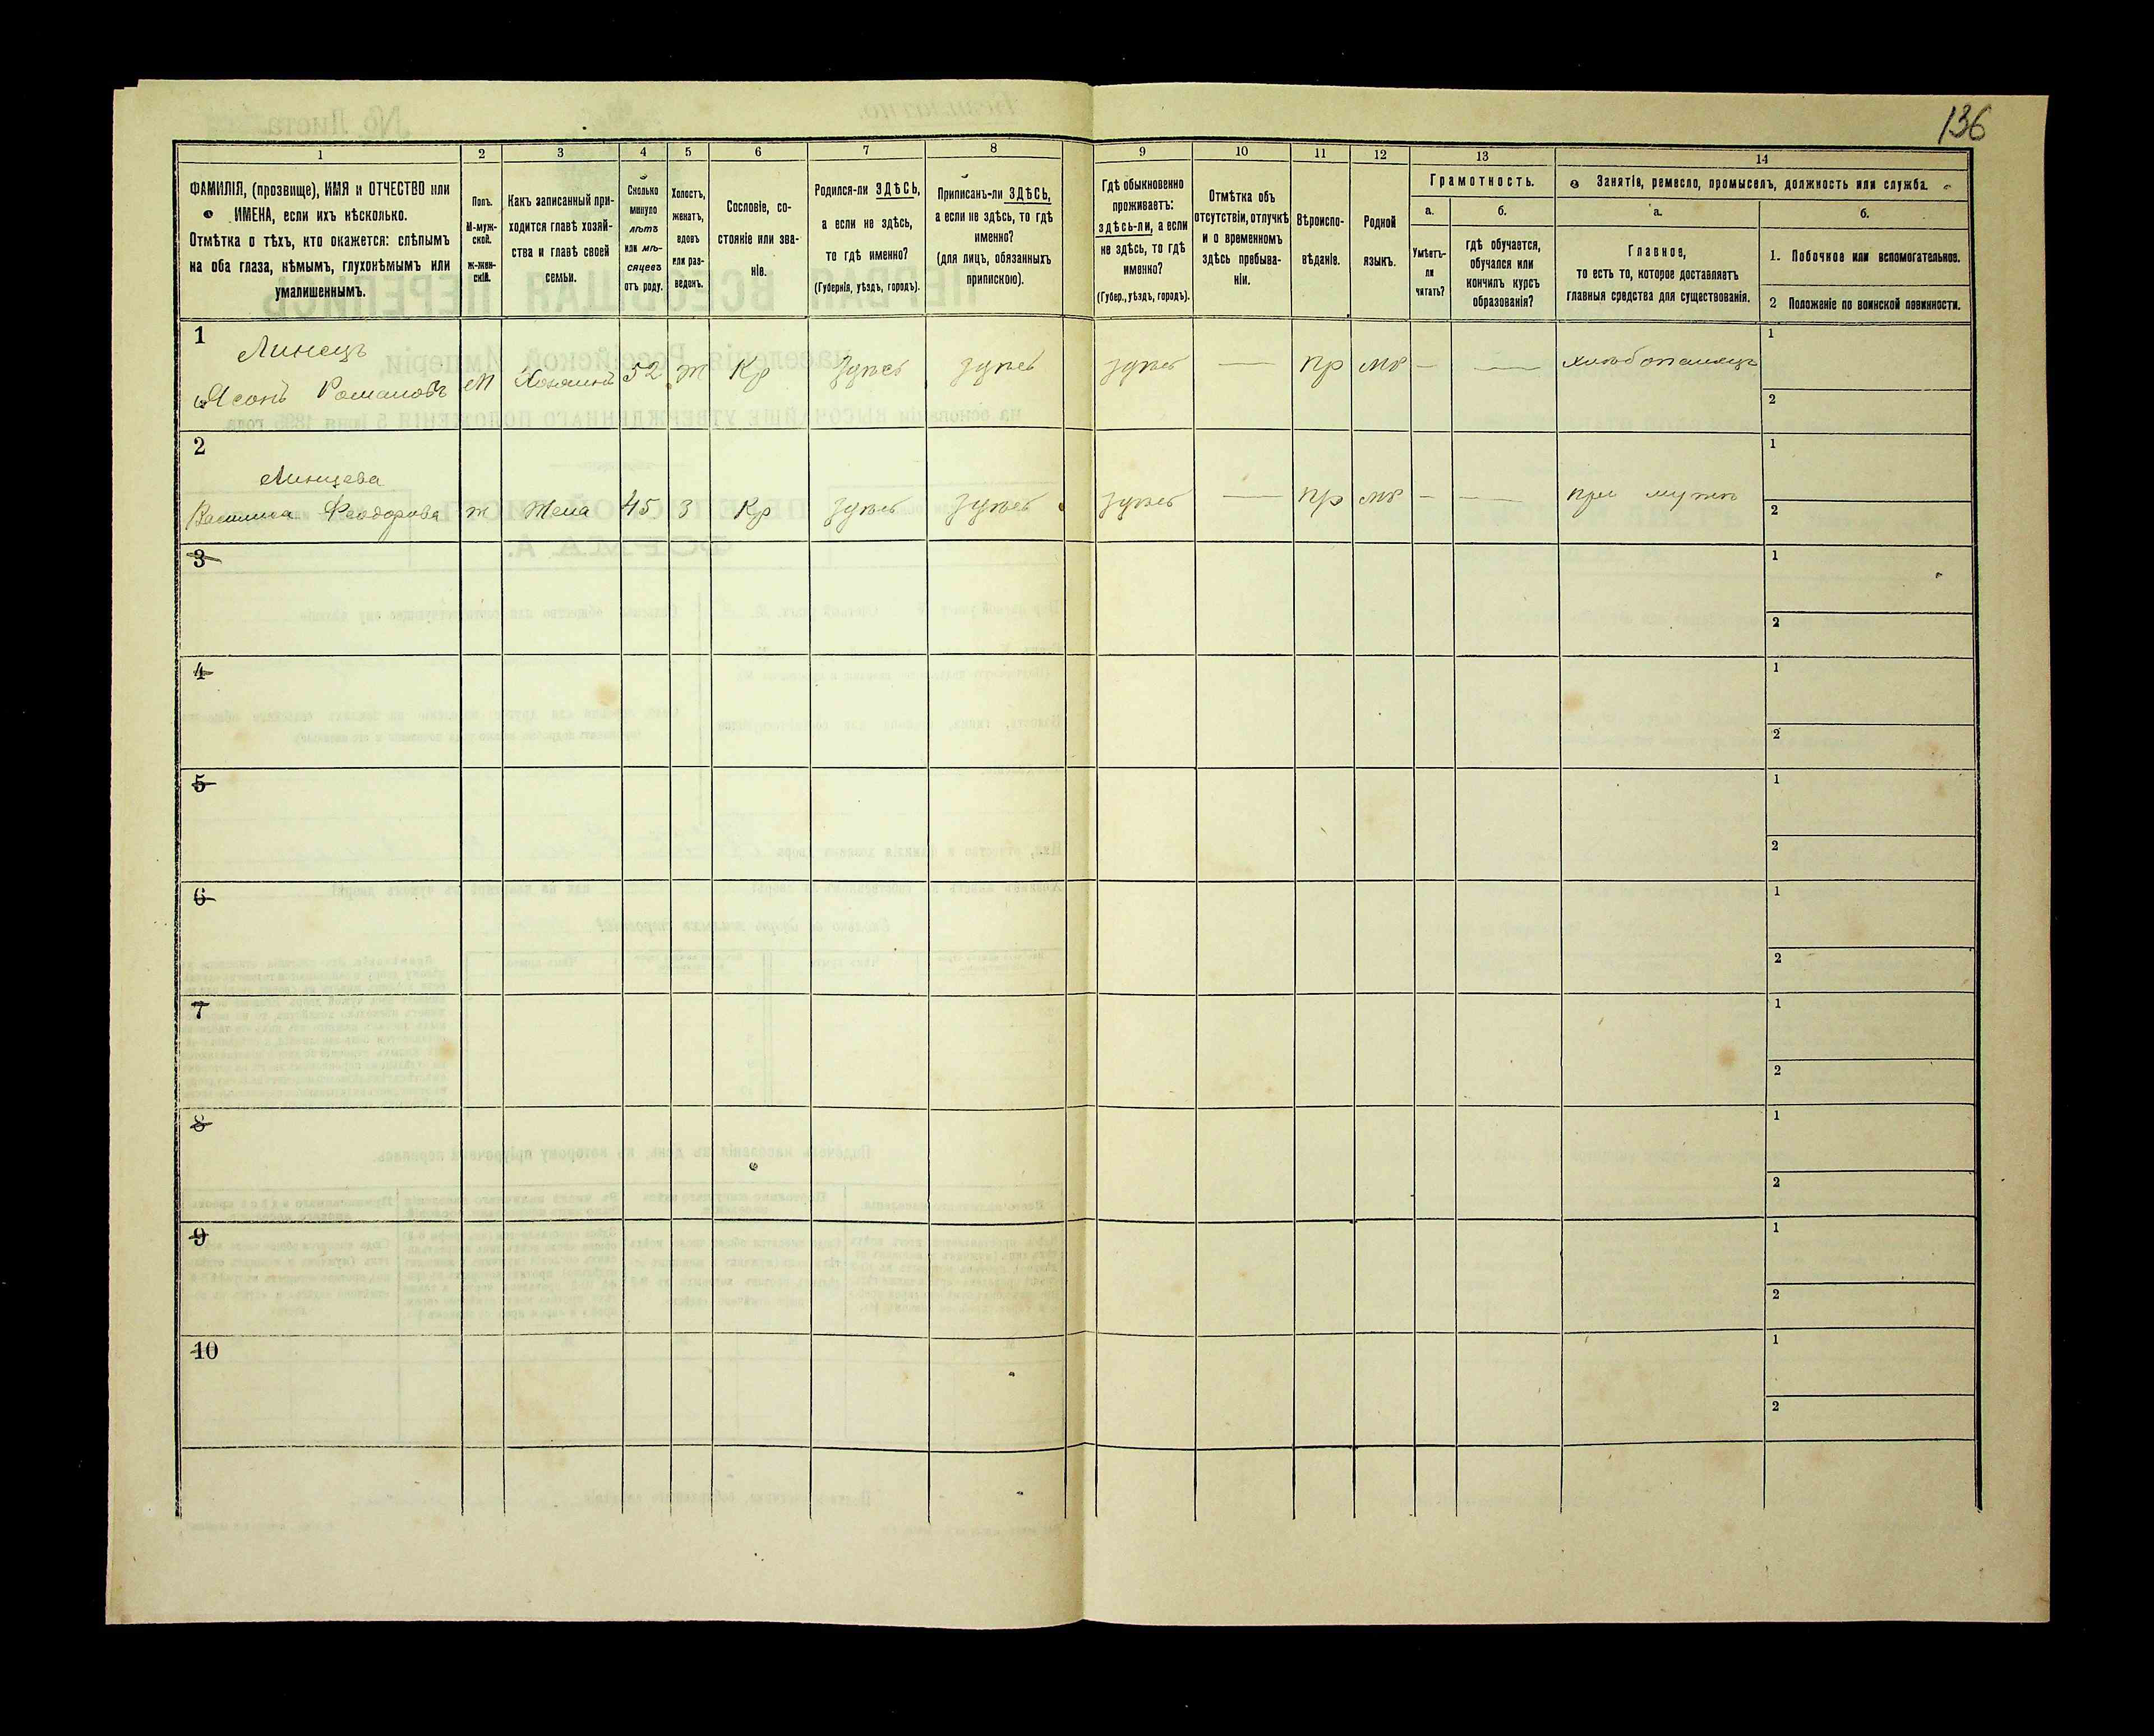 136
1 2 3 4 5 6 7 8 9 10 11 12 13 14
ФАМИЛІЯ, (прозвище), ИМЯ и ОТЧЕСТВО или
ИМЕНА, если ихъ нѣсколько.
Отмѣтка о тѣхъ, кто окажется: слѣпымъ
на оба глаза, нѣмымъ, глухонѣмымъ или
умалишеннымъ.
Полъ.
М-муж-
ской.
ж-жен-
скій.
Какъ записанный при-
ходится главѣ хозяй-
ства и главѣ своей
семьи.
Сколько
минуло
лѣтъ
или мѣ-
сяцевъ
отъ роду.
Холостъ,
женатъ,
вдовъ
или раз-
веденъ.
Сословіе, со-
стояніе или зва-
ніе.
Родился-ли ЗДѢСЬ,
а если не здѣсь,
то гдѣ именно?
(Губернія, уѣздъ, городъ).
Приписанъ-ли ЗДѢСЬ,
а если не здѣсь, то гдѣ
именно?
(для лицъ, обязанныхъ
припискою).
Гдѣ обыкновенно
проживаетъ:
здѣсь-ли, а если
не здѣсь, то гдѣ
именно?
(Губер., уѣздъ, городъ).
Отмѣтка объ
отсутствіи, отлучкѣ
и о временномъ
здѣсь пребыва-
ніи.
Вѣроиспо-
вѣданіе.
Родной
языкъ.
Грамотность.
а.
Умѣетъ-
ли
читать?
б.
гдѣ обучается,
обучался или
кончилъ курсъ
образованія?
Занятіе, ремесло, промыселъ, должность или служба.
а.
Главное,
то есть то, которое доставляетъ
главныя средства для существованія.
б.
1. Побочное или вспомогательное.
2 Положеніе по воинской повинности.
1
Линецъ
Ясонъ Романовъ М Хозяинъ 52 ж Кр Здѣсь здѣсь здѣсь — пр мр — — хлѣбопашецъ
1
2
2
Линцева
Василиса Феодорова ж Жена 45 З Кр Здѣсь Здѣсь здѣсь — пр мр — — при мужѣ
1
2
3
1
2
4
1
2
5
1
2
6
1
2
7
1
2
8
1
2
9
1
2
10
1
2